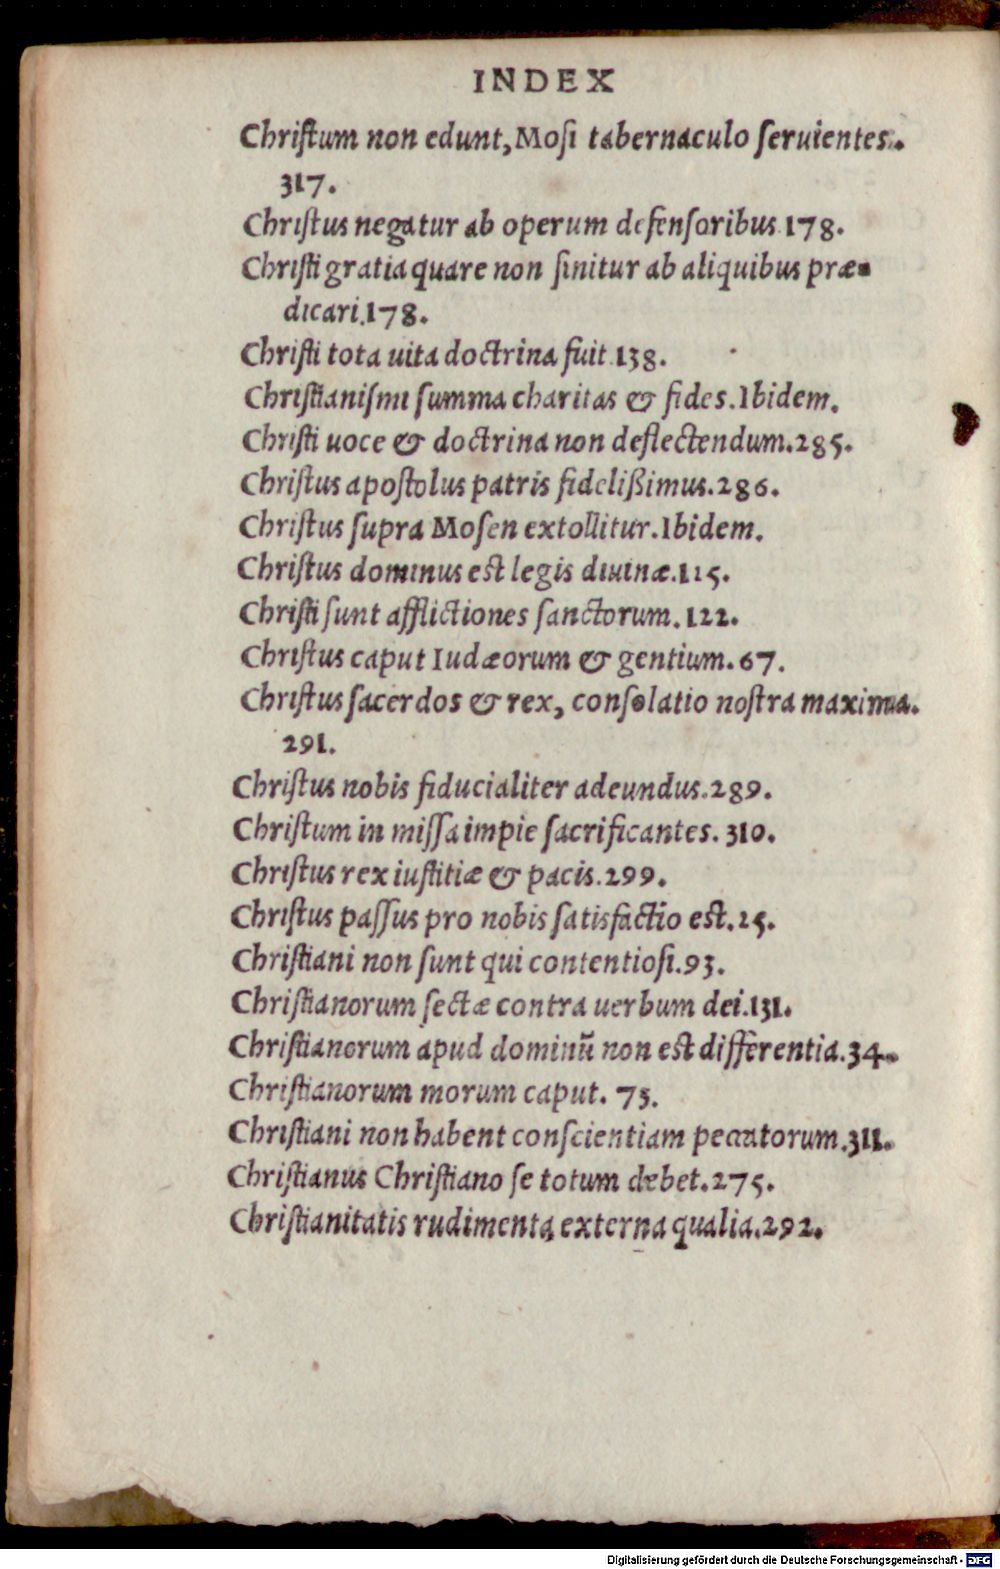 INDEX
Chriſtum non edunt, Moſi tabernaculo ſeruientes.
317.
Chriſtus negatur ab operum defenſoribus 178.
Chriſti gratia quare non ſinitur ab aliquibus præ-
dicari.178.
Chriſti tota uita doctrina fuit.138.
Chriſtianiſmi ſumma charitas & fides.Ibidem.
Chriſti uoce & doctrina non deflectendum.285.
Chriſtus apoſtolus patris fidelißimus.286.
Chriſtus ſupra Moſen extollitur.Ibidem.
Chriſtus dominus est legis diuinæ.115.
Chriſti ſunt afflictiones ſanctorum.122.
Chriſtus caput Iudæorum & gentium.67.
Chriſtus ſacerdos & rex, conſolatio noſtra maxima.
291.
Chriſtus nobis fiducialiter adeundus.289.
Chriſtum in miſſa impie ſacrificantes. 310.
Chriſtus rex iuſtitiæ & pacis.299.
Chriſtus paſſus pro nobis satisfactio est.25.
Chriſtiani non ſunt qui contentioſi.93.
Chriſtianorum ſectæ contra uerbum dei.131.
Chriſtianorum apud dominũ non est differentia.34.
Chriſtianorum morum caput. 73.
Chriſtiani non habent conſcientiam peccatorum.311.
Chriſtianus Chriſtiano ſe totum debet.275.
Chriſtianitatis rudimenta externa qualia.292.
Digitalisierung gefördert durch die Deutsche Forschungsgemeinschaft - DFG